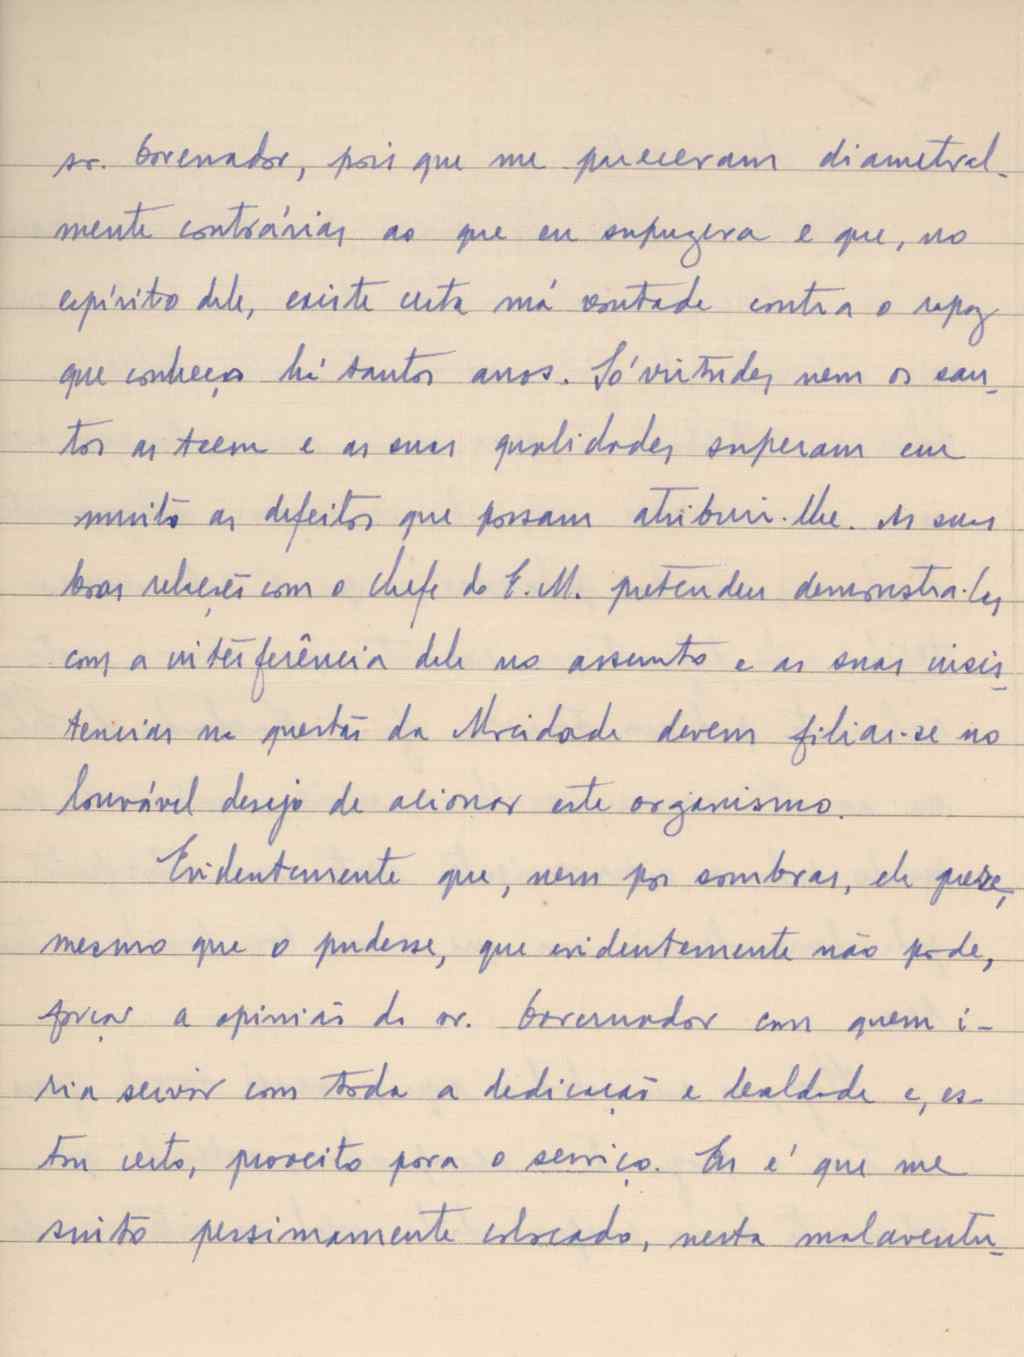 sr. Governador, pois que me pareceram diametral-
mente contrárias ao que eu supuzera e que, no
espírito dele, existe certa má vontade contra o rapaz
que conheço há tantos anos. Só virtudes nem os san-
tos as teem e as suas qualidades superam em
muito as defeitos que possam atribuir-lhe. As suas
boas relações com o Chefe do E.M. pretendeu demonstra-las
com a interferência dele no assunto e as suas insis-
tencias na questão da Mocidade devem filiar-se no
louvável desejo de acionar este organismo.
Evidentemente que, nem por sombras, ele preze,
mesmo que o pudesse, que evidentemente não pode,
forçar a opinião do sr. Governador com quem i-
ria servir com toda a dedicação e lealdade e, es-
tou certo, proveito para o serviço. Eu é que me
sinto pessimamente colocado, nesta malaventu-